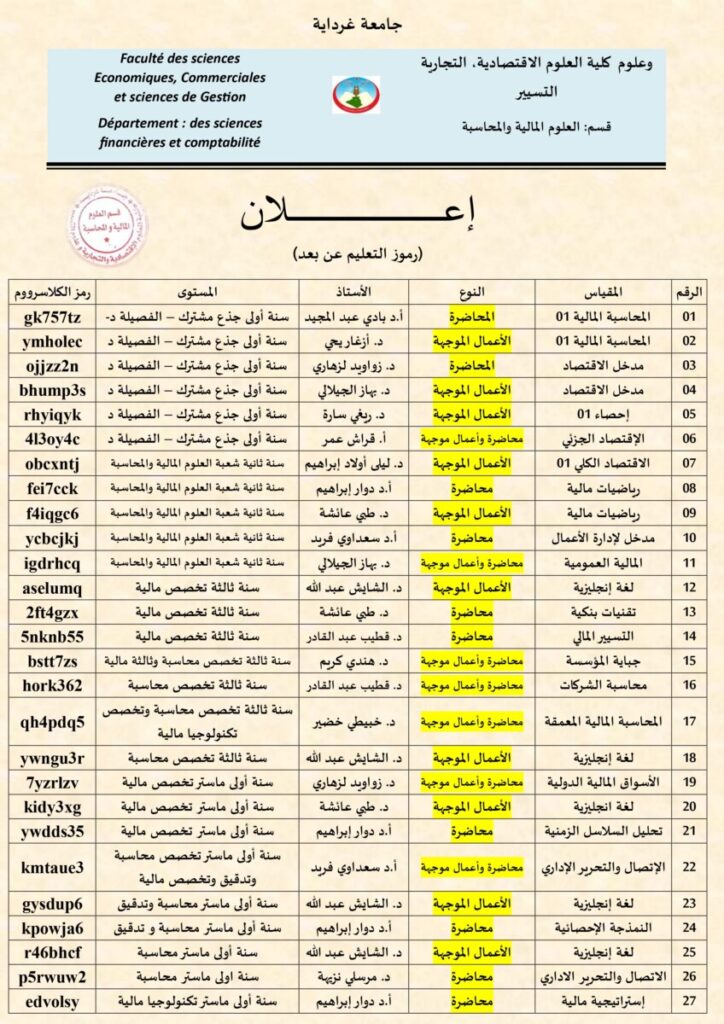 جامعة غرداية
وعلوم كلية العلوم الاقتصادية، التجارية
التسيير
قسم: العلوم المالية والمحاسبة
Faculté des sciences
Economiques, Commerciales
et sciences de Gestion
Département : des sciences
financières et comptabilité
قسم العلوم
المالية و المحاسبة
إعـــــــــــلان
(رموز التعليم عن بعد)
الرقم المقياس النوع الأستاذ المستوى رمز الكلاسرووم
01 المحاسبة المالية 01 المحاضرة أ.د بادي عبد المجيد سنة أولى جذع مشترك – الفصيلة د- gk757tz
02 المحاسبة المالية 01 الأعمال الموجهة د. أزغار يحي سنة أولى جذع مشترك – الفصيلة د ymholec
03 مدخل الاقتصاد المحاضرة د. زواويد لزهاري سنة أولى جذع مشترك – الفصيلة د ojjzz2n
04 مدخل الاقتصاد الأعمال الموجهة د. بهاز الجيلالي سنة أولى جذع مشترك – الفصيلة د bhump3s
05 إحصاء 01 الأعمال الموجهة د. ريغي سارة سنة أولى جذع مشترك – الفصيلة د rhyiqyk
06 الإقتصاد الجزئي محاضرة وأعمال موجهة أ. قراش عمر سنة أولى جذع مشترك – الفصيلة د 4l3oy4c
07 الاقتصاد الكلي 01 الأعمال الموجهة د. ليلى أولاد إبراهيم سنة ثانية شعبة العلوم المالية والمحاسبة obcxntj
08 رياضيات مالية محاضرة أ.د دوار إبراهيم سنة ثانية شعبة العلوم المالية والمحاسبة fei7cck
09 رياضيات مالية الأعمال الموجهة د. طبي عائشة سنة ثانية شعبة العلوم المالية والمحاسبة f4iqgc6
10 مدخل لإدارة الأعمال محاضرة أ.د سعداوي فريد سنة ثانية شعبة العلوم المالية والمحاسبة ycbcjkj
11 المالية العمومية محاضرة وأعمال موجهة د. بهاز الجيلالي سنة ثانية شعبة العلوم المالية والمحاسبة igdrhcq
12 لغة إنجليزية الأعمال الموجهة د. الشايش عبد الله سنة ثالثة تخصص مالية aselumq
13 تقنيات بنكية محاضرة د. طبي عائشة سنة ثالثة تخصص مالية 2ft4gzx
14 التسيير المالي محاضرة د. قطيب عبد القادر سنة ثالثة تخصص مالية 5nknb55
15 جباية المؤسسة محاضرة وأعمال موجهة د. هندي كريم سنة ثالثة تخصص محاسبة وثالثة مالية bstt7zs
16 محاسبة الشركات محاضرة وأعمال موجهة د. قطيب عبد القادر سنة ثالثة تخصص محاسبة hork362
17 المحاسبة المالية المعمقة محاضرة وأعمال موجهة د. خبيطي خضير سنة ثالثة تخصص محاسبة وتخصص qh4pdq5
تكنولوجيا مالية
18 لغة إنجليزية الأعمال الموجهة د. الشايش عبد الله سنة ثالثة تخصص محاسبة ywngu3r
19 الأسواق المالية الدولية محاضرة وأعمال موجهة د. زواويد لزهاري سنة أولى ماستر تخصص مالية 7yzrlzv
20 لغة انجليزية الأعمال الموجهة د. طبي عائشة سنة أولى ماستر تخصص مالية kidy3xg
21 تحليل السلاسل الزمنية محاضرة أ.د دوار إبراهيم سنة أولى ماستر تخصص مالية ywdds35
22 الإتصال والتحرير الإداري محاضرة وأعمال موجهة أ.د سعداوي فريد سنة أولى ماستر تخصص محاسبة kmtaue3
وتدقيق وتخصص مالية
23 لغة إنجليزية الأعمال الموجهة د. الشايش عبد الله سنة أولى ماستر محاسبة وتدقيق gysdup6
24 النمذجة الإحصائية محاضرة أ.د دوار إبراهيم سنة أولى ماستر محاسبة و تدقيق kpowja6
25 لغة إنجليزية الأعمال الموجهة د. الشايش عبد الله سنة أولى ماستر محاسبة r46bhcf
26 الاتصال والتحرير الاداري محاضرة د. مرسلي نزيهة سنة اولى ماستر محاسبة p5rwuw2
27 إستراتيجية مالية محاضرة أ.د دوار إبراهيم سنة أولى ماستر تكنولوجيا مالية edvolsy